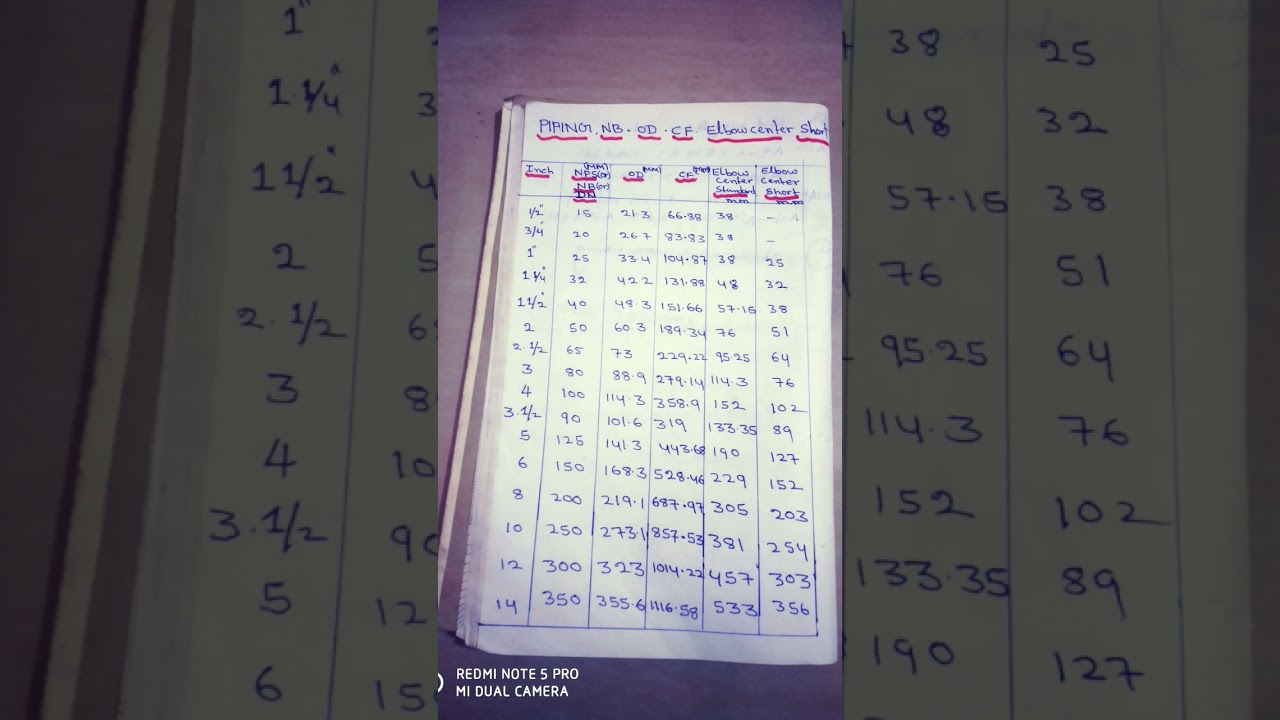 PIPING, NB. OD. CF Elbow center Short
Inch (MM) NPS(or) NB(or) DN OD(MM) CF(MM) Elbow Center Standard mm Elbow Center Short mm
1/2" 15 21.3 66.88 38 -
3/4" 20 26.7 83.83 38 -
1" 25 33.4 104.87 38 25
1 1/4" 32 42.2 131.88 48 32
1 1/2" 40 48.3 151.66 57.15 38
2 50 60.3 189.34 76 51
2.1/2 65 73 229.22 95.25 64
3 80 88.9 279.14 114.3 76
4 100 114.3 358.9 152 102
3.1/2 90 101.6 319 133.35 89
5 125 141.3 443.68 190 127
6 150 168.3 528.46 229 152
8 200 219.1 687.97 305 203
10 250 273.1 857.53 381 254
12 300 323 1014.22 457 303
14 350 355.6 1116.58 533 356
REDMI NOTE 5 PRO
MI DUAL CAMERA